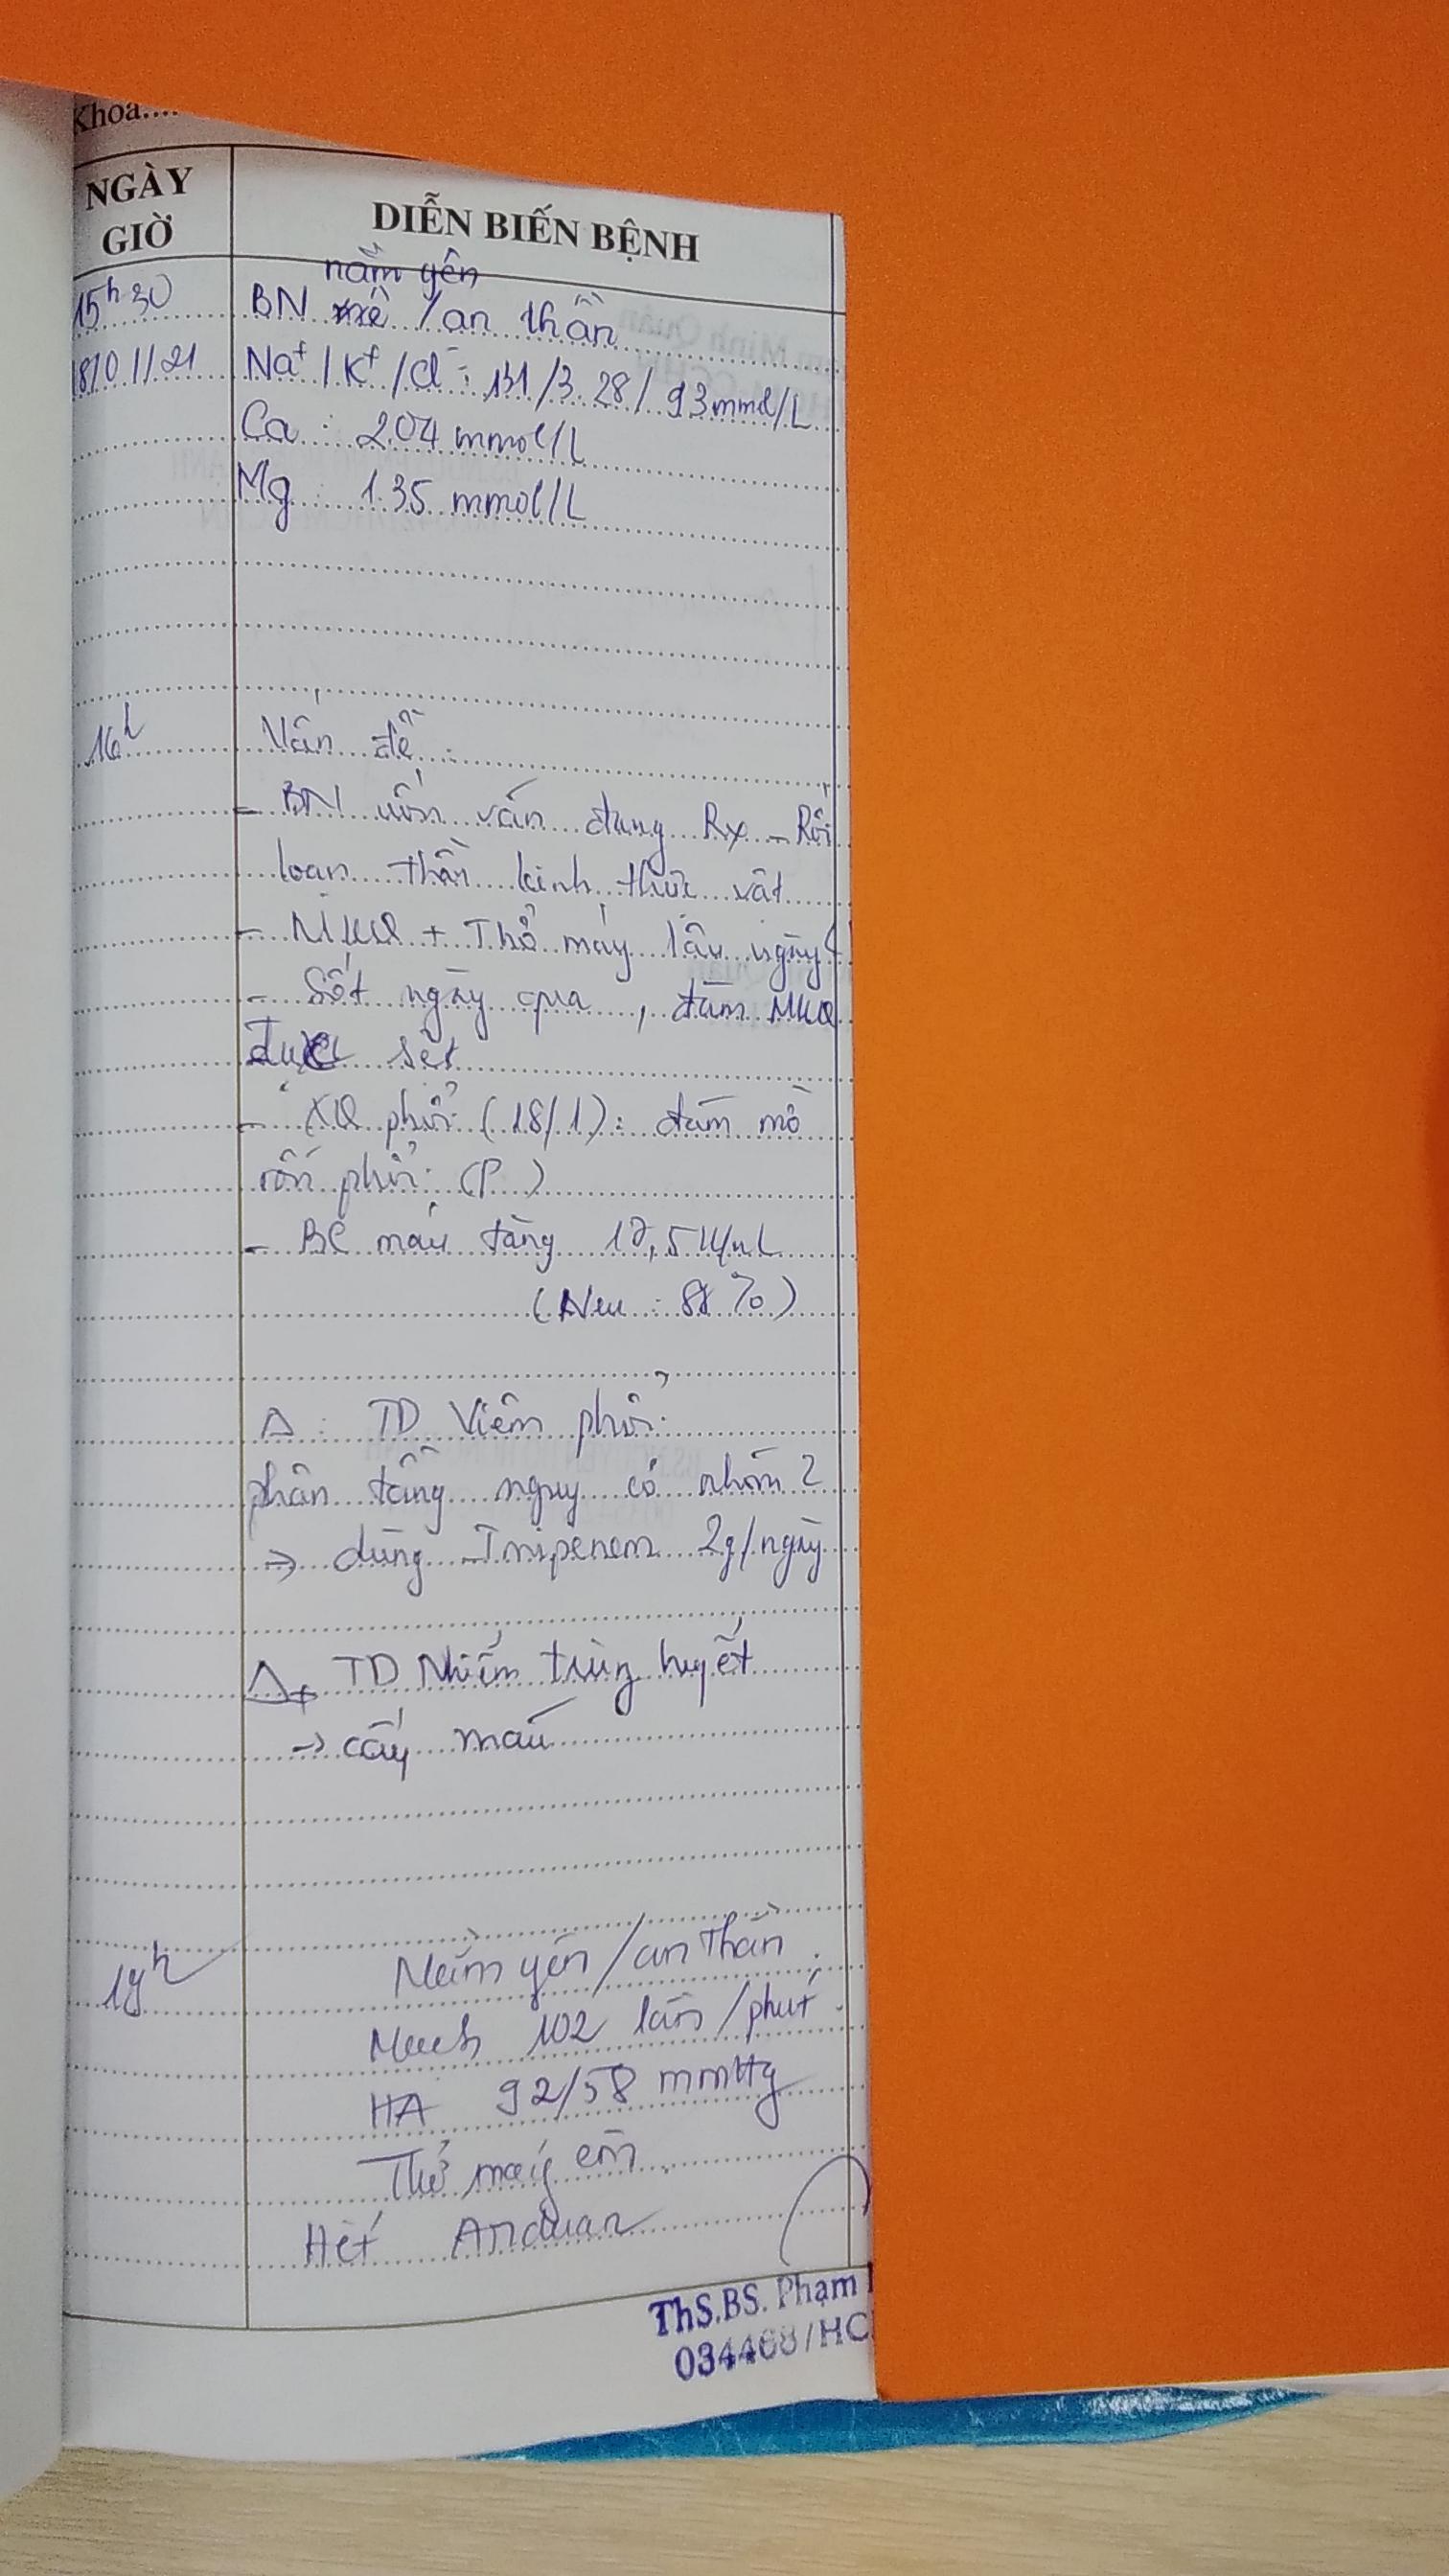 Khoa....
NGÀY GIỜ
DIỄN BIẾN BỆNH
nằm yên
15h30 BN /an thần
18/01/21 Na+/K+/Cl-: 131/3.28/93mmol/L
Ca : 2.04 mmol/L
Mg : 1.35 mmol/L
16h Vấn đề :
- BN uốn ván đang Rx - Rối
loạn thần kinh thực vật
- MKQ + Thở máy lâu ngày
- Sốt ngày qua, đàm MKQ
đục sệt
- XQ phổi (18/1): đám mờ
rốn phổi (P)
- BC máu tăng 17,5 K/uL
(Neu : 88%)
Δ : TD Viêm phổi
phân tầng nguy cơ nhóm 2
→ dùng Imipenem 2g/ngày
Δ+ TD Nhiễm trùng huyết
→ cấy máu
19h Nằm yên/an thần.
Mạch 102 lần/phút
HA 92/58 mmHg
Thở máy êm.
Hết Arduan
ThS.BS. Phạm
034468/HC